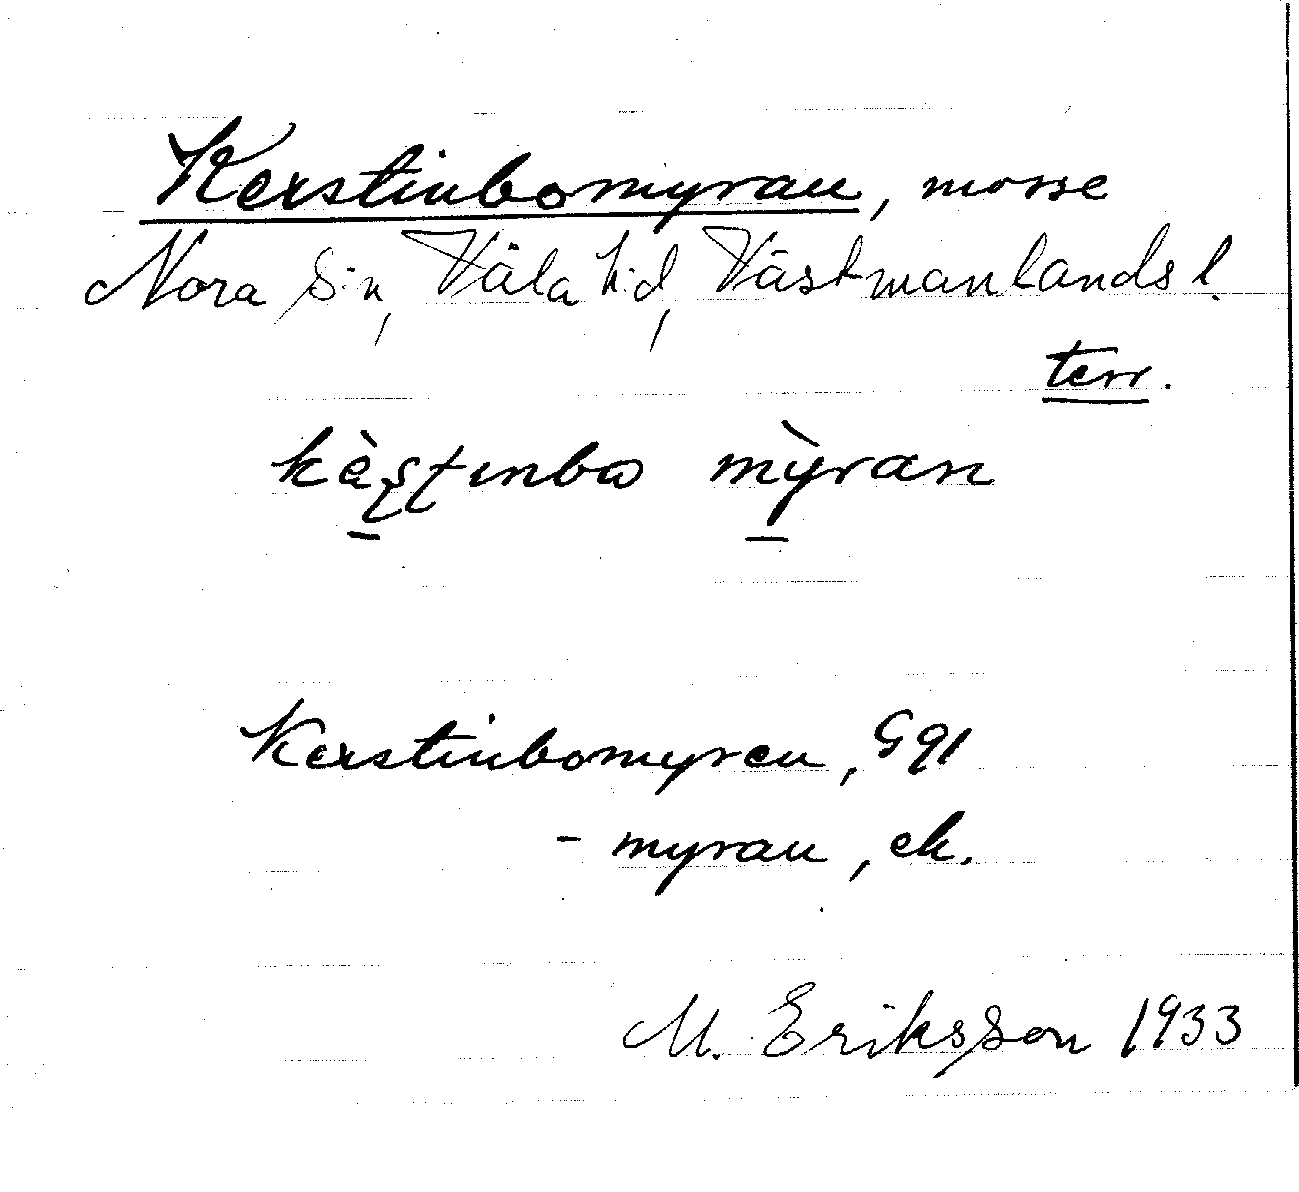 Kerstinbomyran, mosse
Nora S:n, Våla h:d, Västmanlands l.
terr.
kèʂʈınbω mỳran
Kerstinbomyren, G 91
- myran, ek.
M. Eriksson 1933